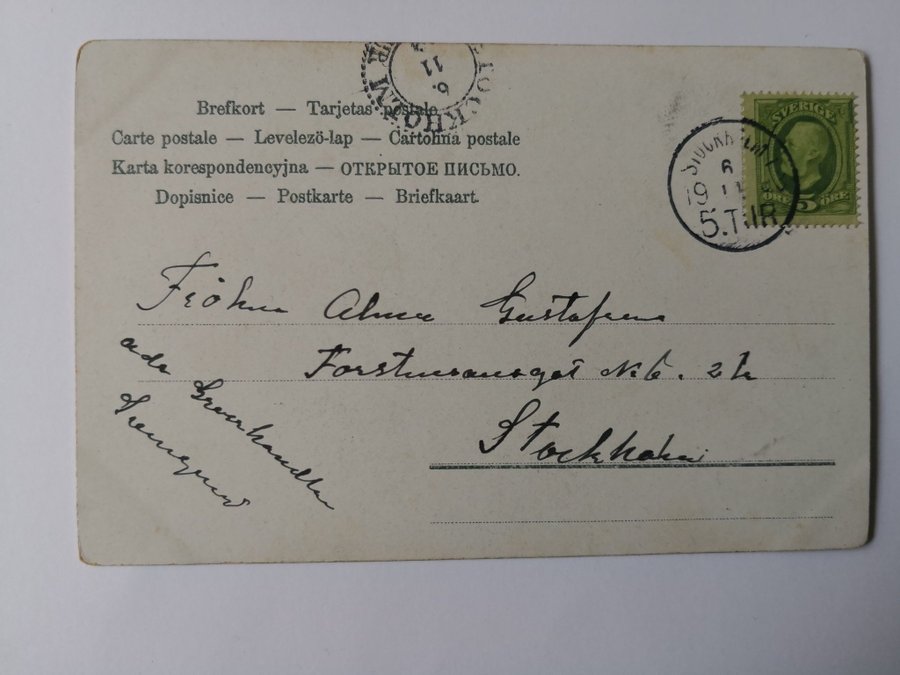 Brefkort — Tarjetas postale
Carte postale — Levelező-lap — Cartolina postale
Karta korespondencyjna — ОТКРЫТОЕ ПИСЬМО.
Dopisnice — Postkarte — Briefkaart.
STOCKHOLM
6
11
SVERIGE
5
ÖRE ÖRE
STOCKHOLM
6
19 11
5.TUR
Fröken Alma Gustafsson
N:6. 2 tr
Stockholm
adr Grosshandlar